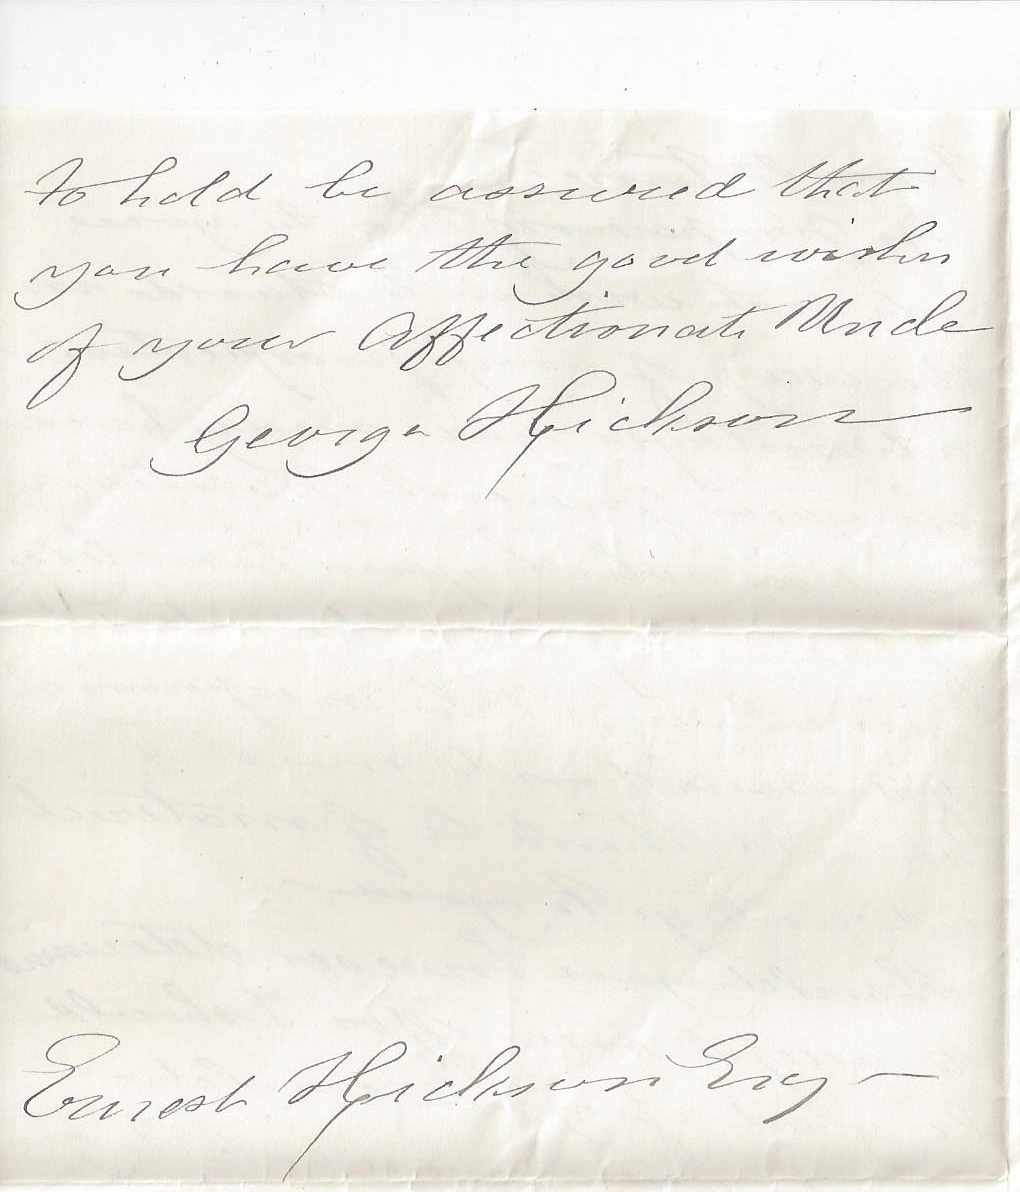 to hold be assured that
you have the good wishes
of your Affectionate Uncle
George Hickson
Ernest Hickson Esq –